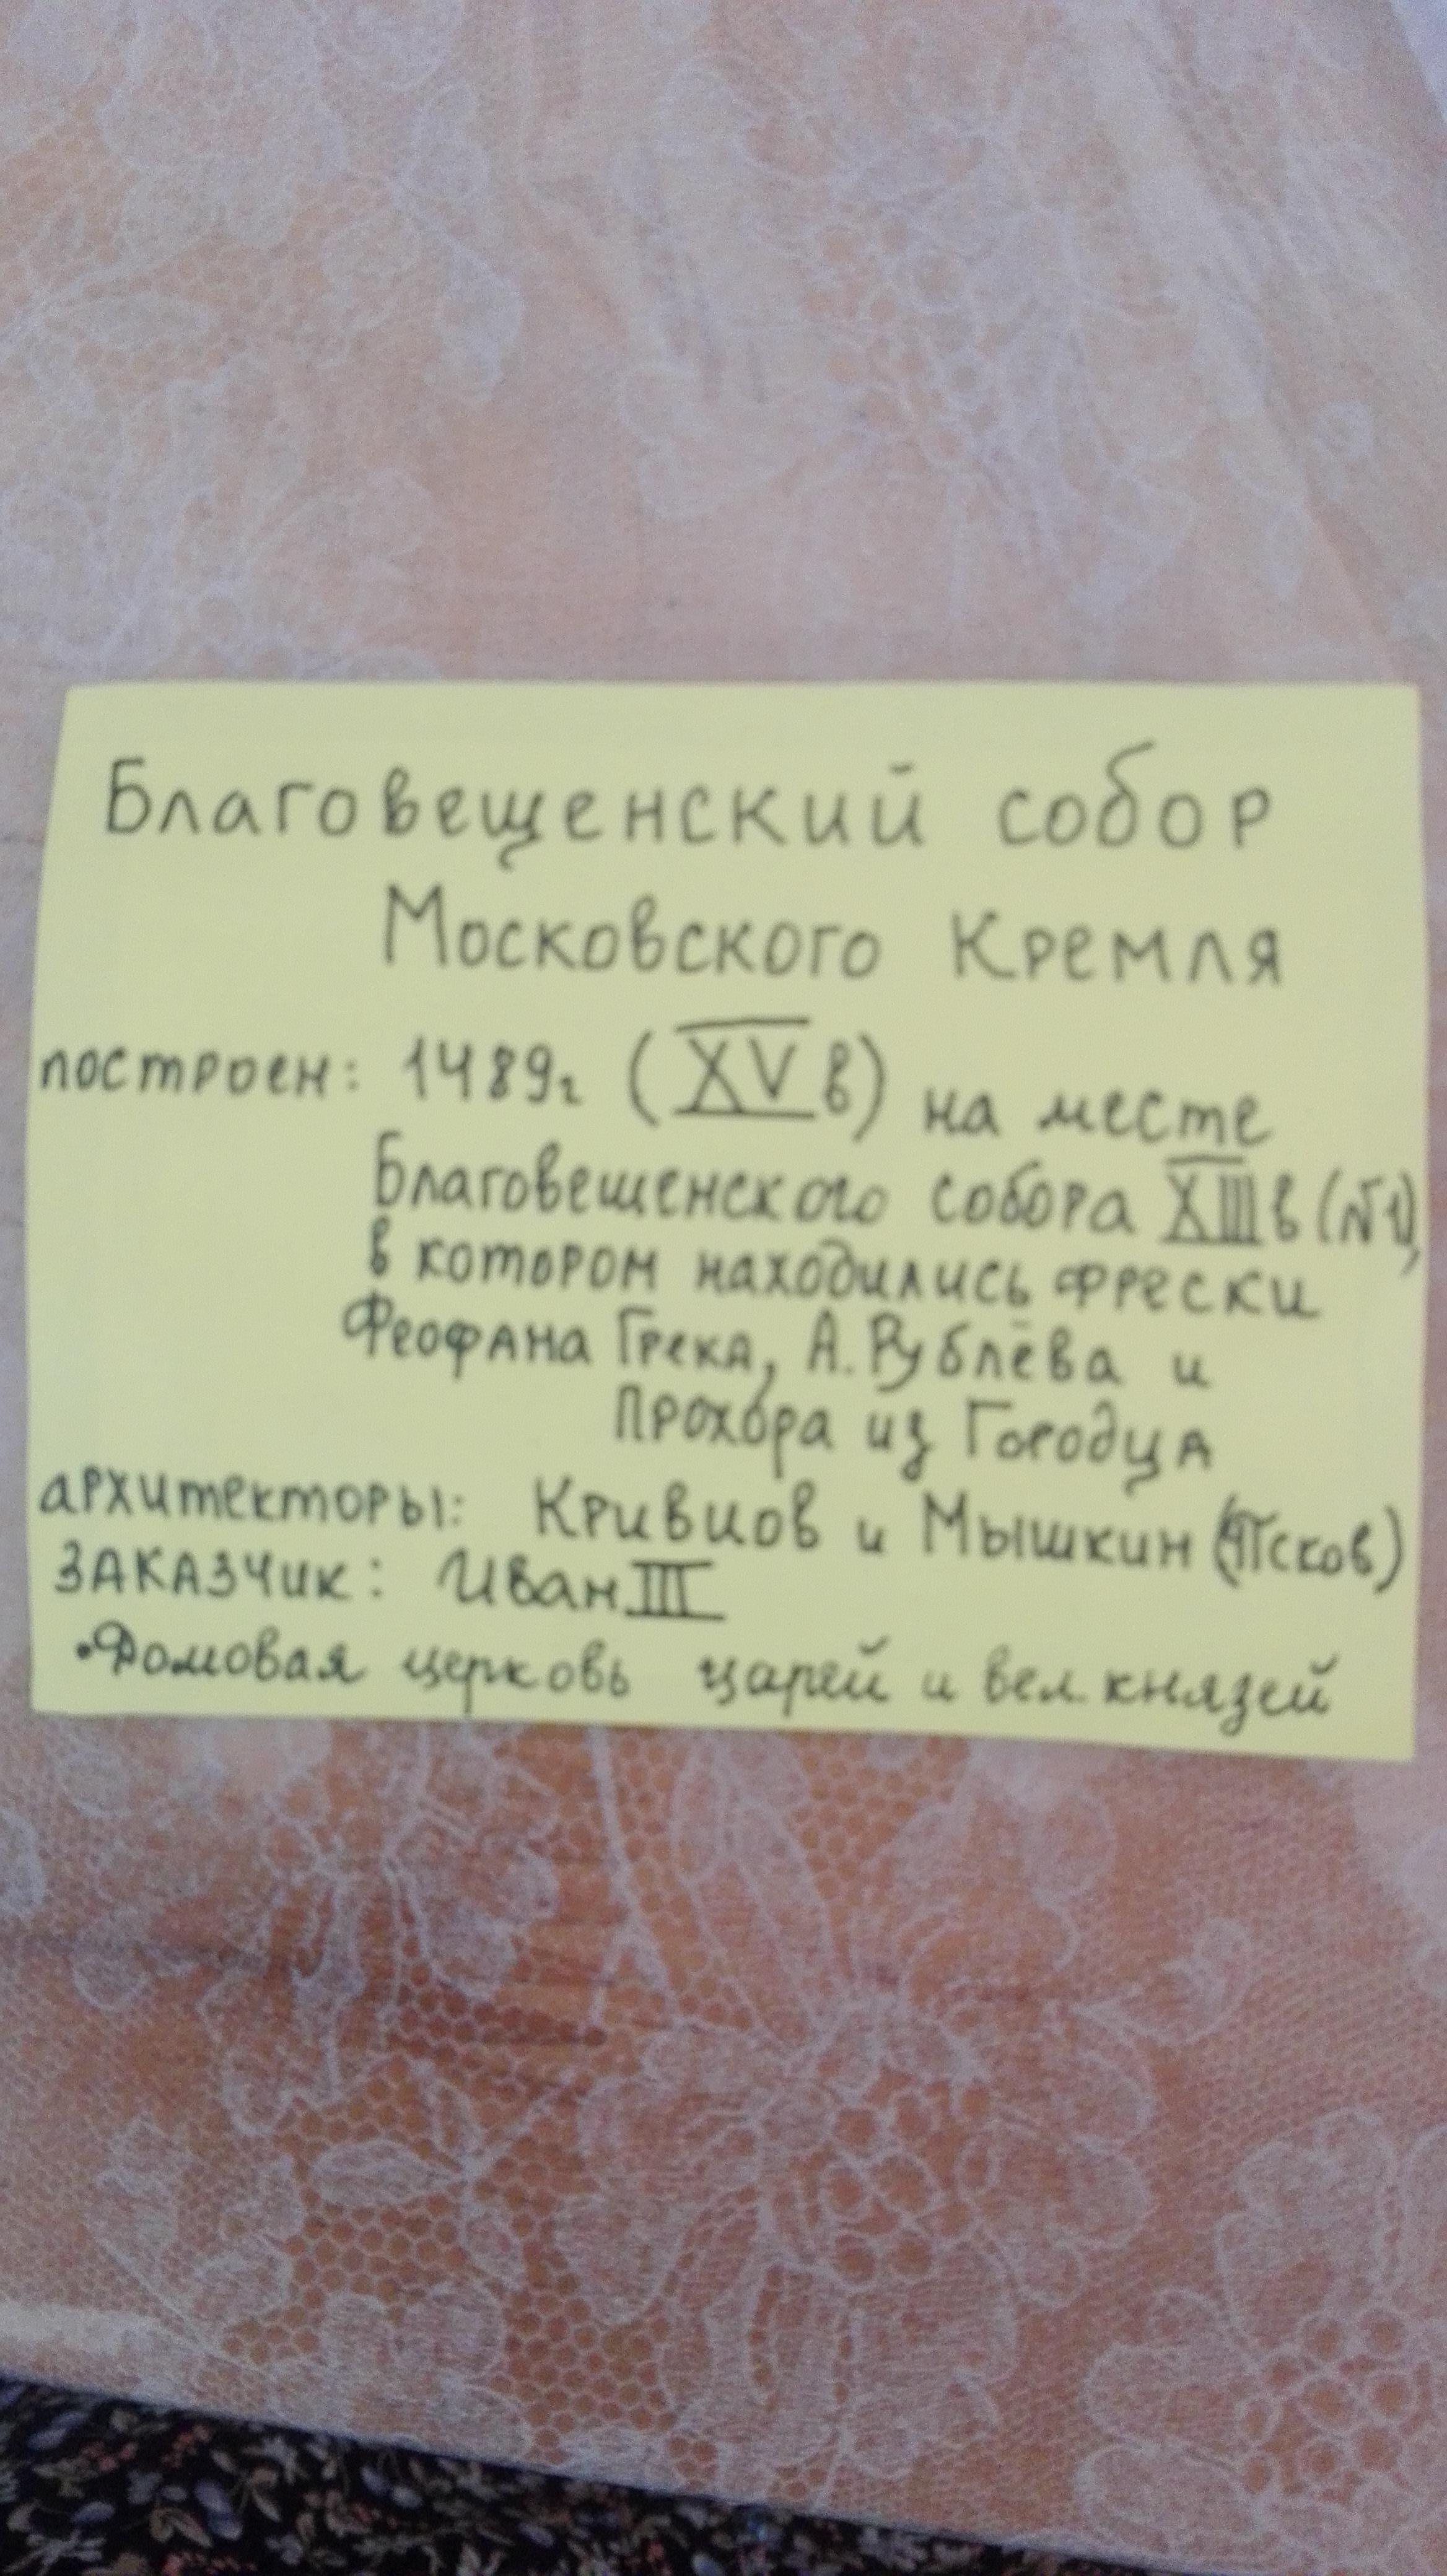 Благовещенский собор
Московского Кремля
построен: 1489г (XV в) на месте
Благовещенского собора XIII в (№1),
в котором находились фрески
Феофана Грека, А. Рублёва и
Прохора из Городца
архитекторы: Кривцов и Мышкин (Псков)
заказчик: Иван III
•Домовая церковь царей и вел князей